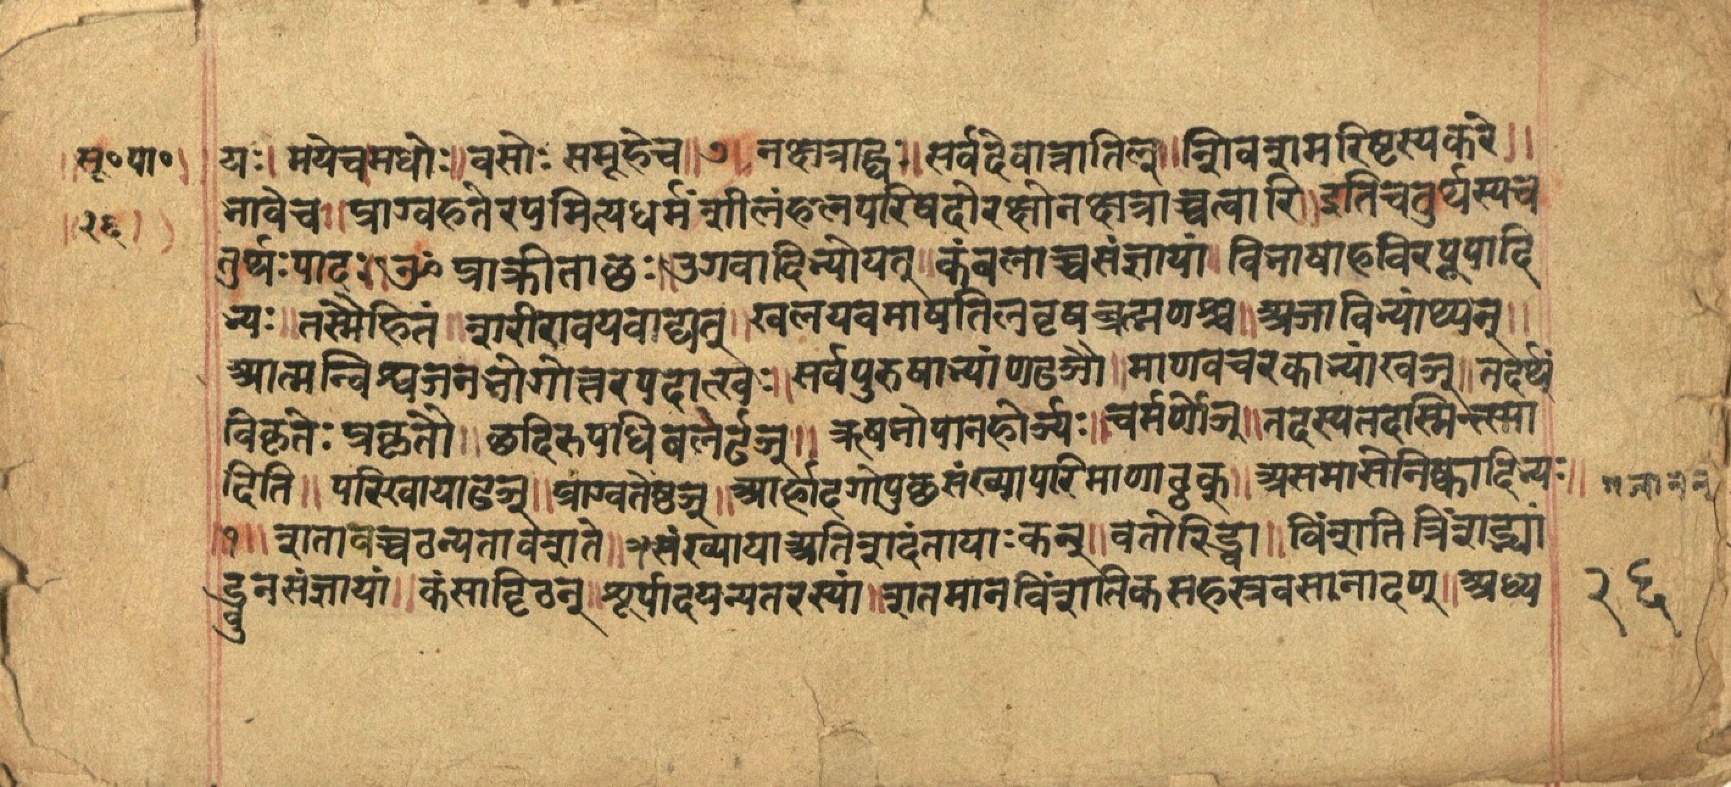 सू॰पा॰
२६
यः। मयेच।मधोः॥वसोः समूहेच॥७॥नक्षत्राद्घः॥सर्वदेवात्तातिल्॥शिवशमरिष्टस्यकरे॥
भावेच॥प्राग्वहतेरपमित्यधर्मंशीलंहलपरिषदोरक्षोनक्षत्राच्चत्वारि॥इतिचतुर्थस्यच
तुर्थःपादः॥ॐ प्राक्क्रीताच्छः॥उगवादिभ्योयत्॥कंबलाच्चसंज्ञायां॥विभाषाहविरपूपादि
भ्यः॥तस्मैहितं॥शरीरावयवाद्यत्॥खलयवमाषतिलवृषब्रह्मणश्च॥अजाविभ्यांथ्यन्॥
आत्मन्विश्वजनभोगोत्तरपदात्खः॥सर्वपुरुषाभ्यांणढञौ॥माणवचरकाभ्यांखञ्॥तदर्थं
विकृतेः प्रकृतौ॥छदिरुपधिबलेर्ढञ्॥ऋषभोपानहोर्ञ्यः॥चर्मणोञ्॥तदस्यतदस्मिन्स्या
दिति॥परिखायाढञ्॥प्राग्वतेष्ठञ्॥आर्हादगोपुच्छसंख्यापरिमाणाठ्ठक्॥असमासेनिष्कादिभ्यः॥
१॥शताच्चठन्यतावशते॥संख्यायाअतिशदंतायाःकन्॥वतोरिड्वा॥विंशतित्रिंशद्भ्यां
ड्वुनसंज्ञायां॥कंसाट्टिठन्॥शूर्पादञन्यतरस्यां॥शतमानविंशतिकसहस्त्रवसनादण्॥अध्य
२६